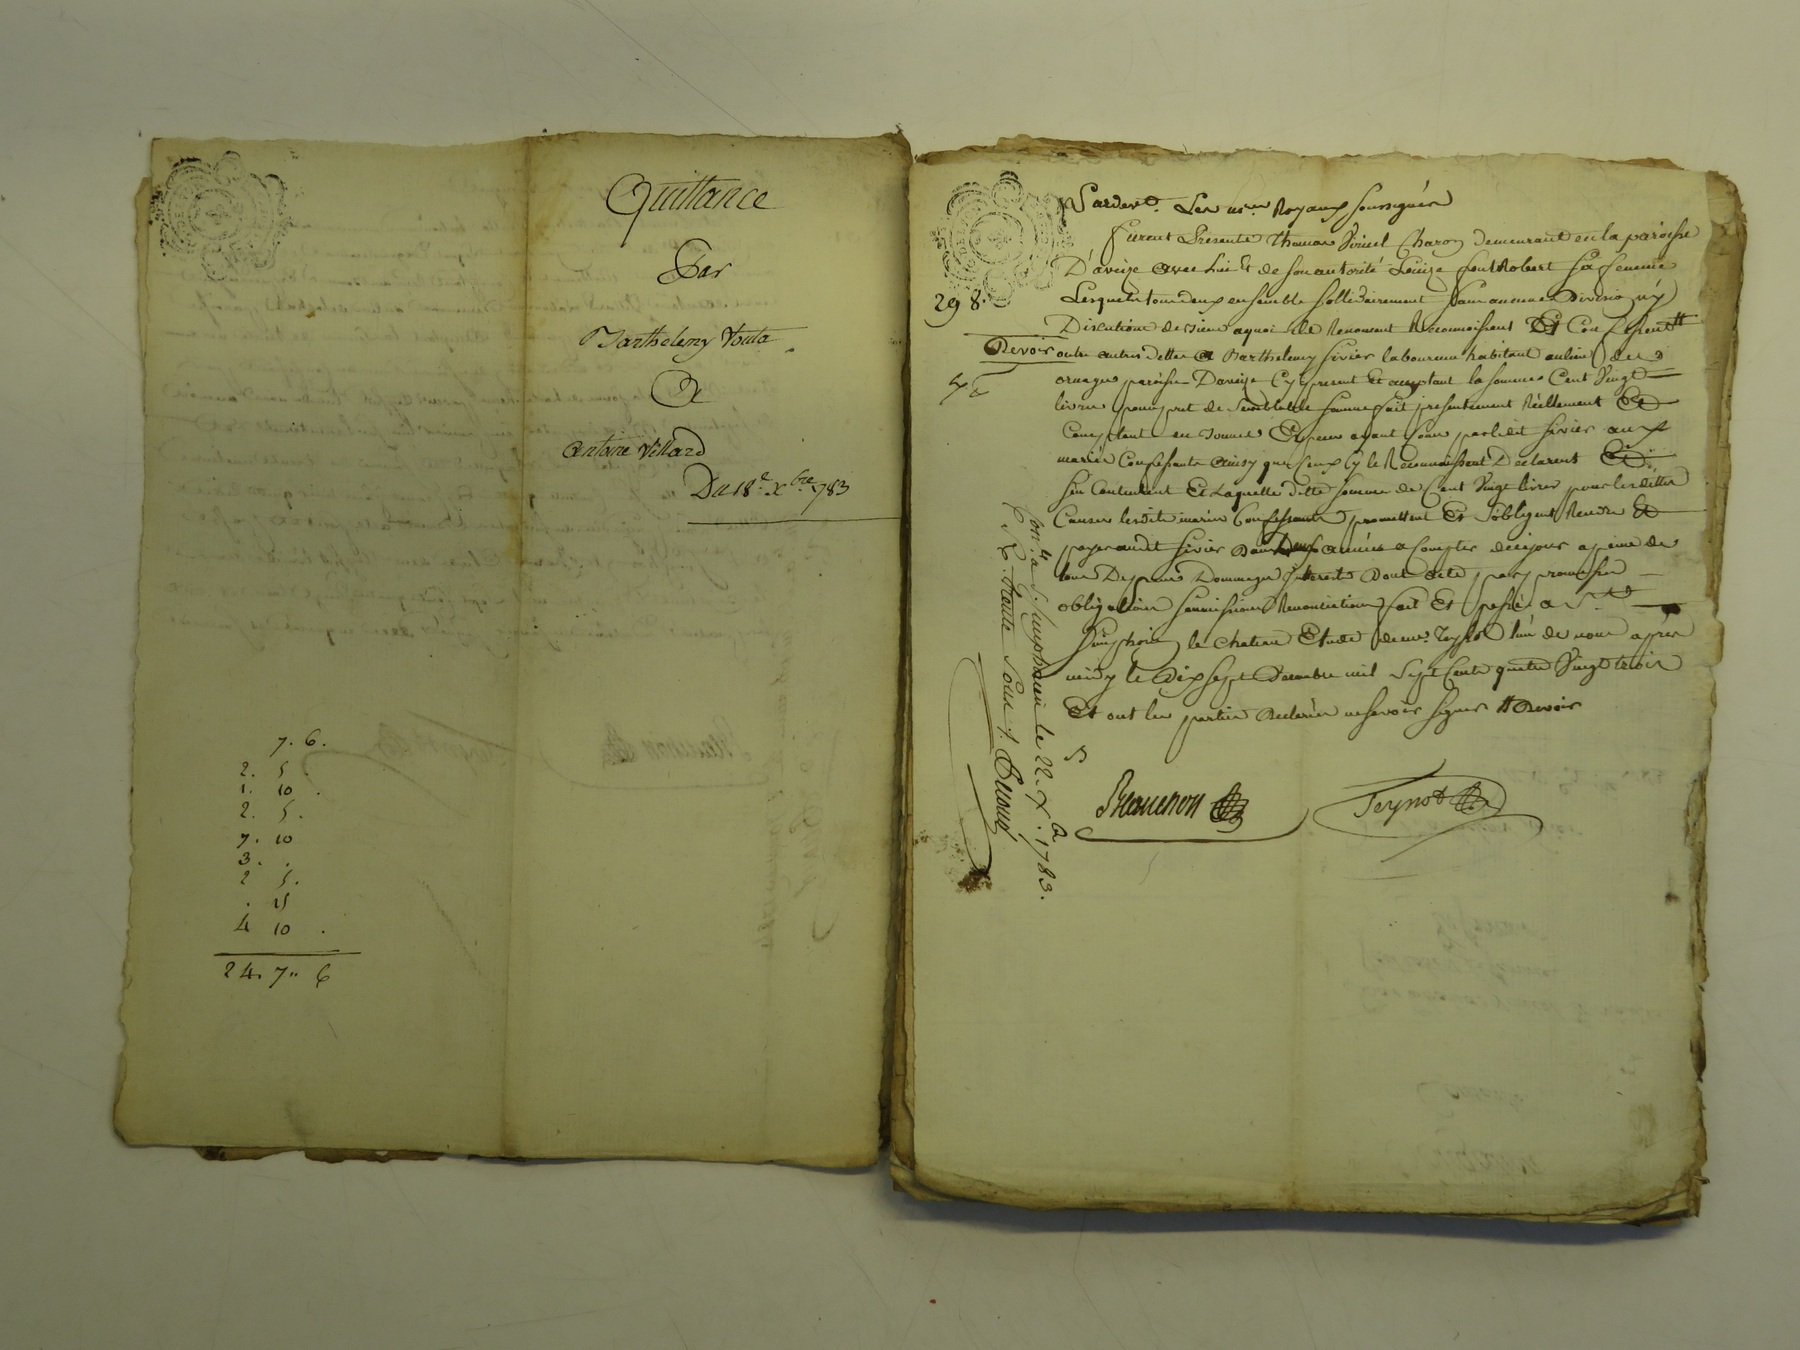 Quittance
Par
Barthelemy Touta
A
Antoine Villard
Du 18e Xbre 1783
7. 6.
2. 5.
1. 10.
2. 5.
7. 10
3. .
2 5.
. 15
4 10 .
24. 7" 6
Pardevt. Les nres Royaux soussignés
furent Presents Thomas Charon demeurant en la paroisse
D'aveize avec lui Et de son autorité Louize Robert sa femme
298.
Lesquels tous deux ensemble sollidairement sans aucune Division ny
Discutions de Renoncant Reconnoissent Et Confessent
Devoir outre autres dettes a Barthelemy laboureur habitant au lieu des
paroisse Daveize Cy present Et acceptant la somme Cent Vingt
livres pour pret de Semblable somme fait presentement Réellement Et
Comptant en ayant Cours par ledit aux
mariés Confessants ainsy que Ceux Cy le Reconnoissent Declarent Et
Sen Contentent Et Laquelle ditte somme de Cent Vingt livres pour lesdittes
Causes lesdits mariés Confessants promettent Et Sobligent Rendre Et
payer audit dans Deux années a Compter de cejour a peine de
tous Depens Dommages Interets Dont acte par promesses
obligations soumissions Renonciations fait Et passé a St
Simphorien le chateau Etude de me Teynot lun de nous après
midy le Dix sept Decembre mil Sept Cents quatre Vingt trois
Et ont les parties declarées ne Savoir Signer Devoir
Beauchon
Teynot
Con.lé a S. Simphorien le 22. X. 1783.
R. trente Sous